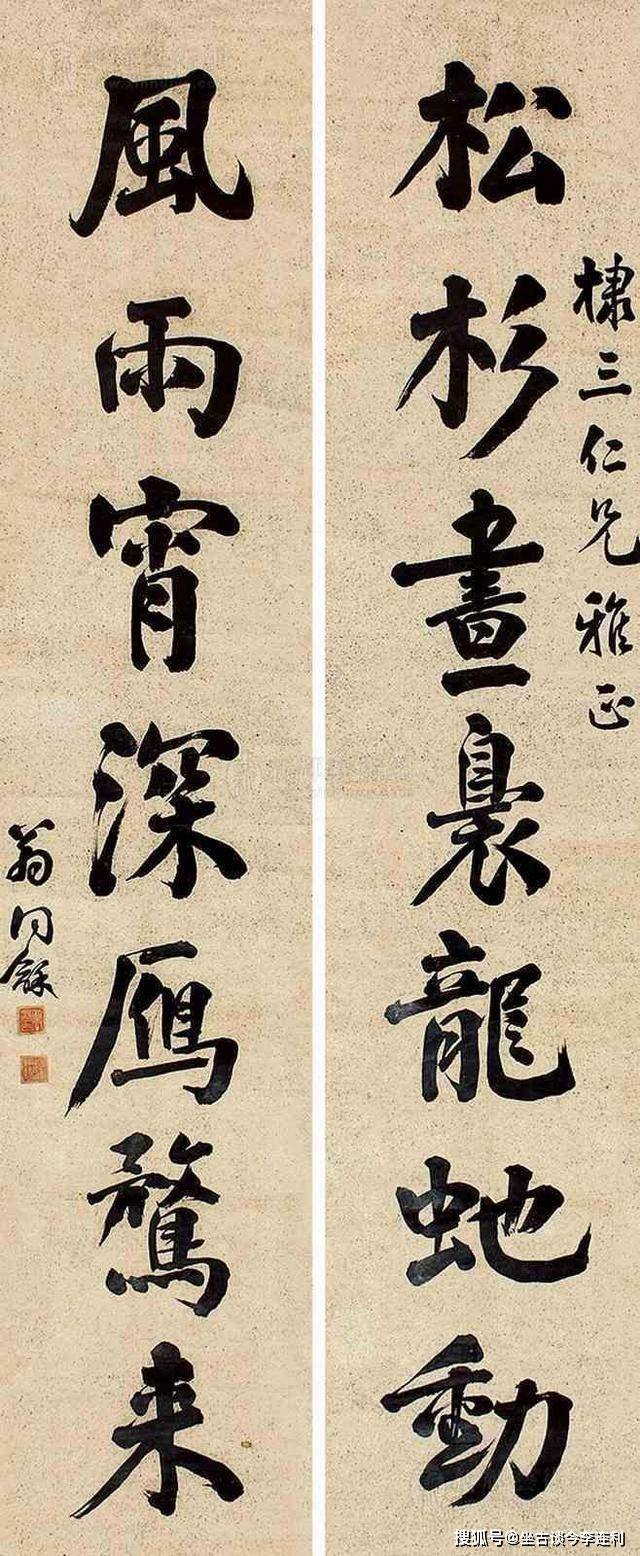 棣三仁兄雅正
松杉晝裊龍虵動
風雨宵深鴈鶩来
翁同龢
搜狐号@坐古谈今李连利